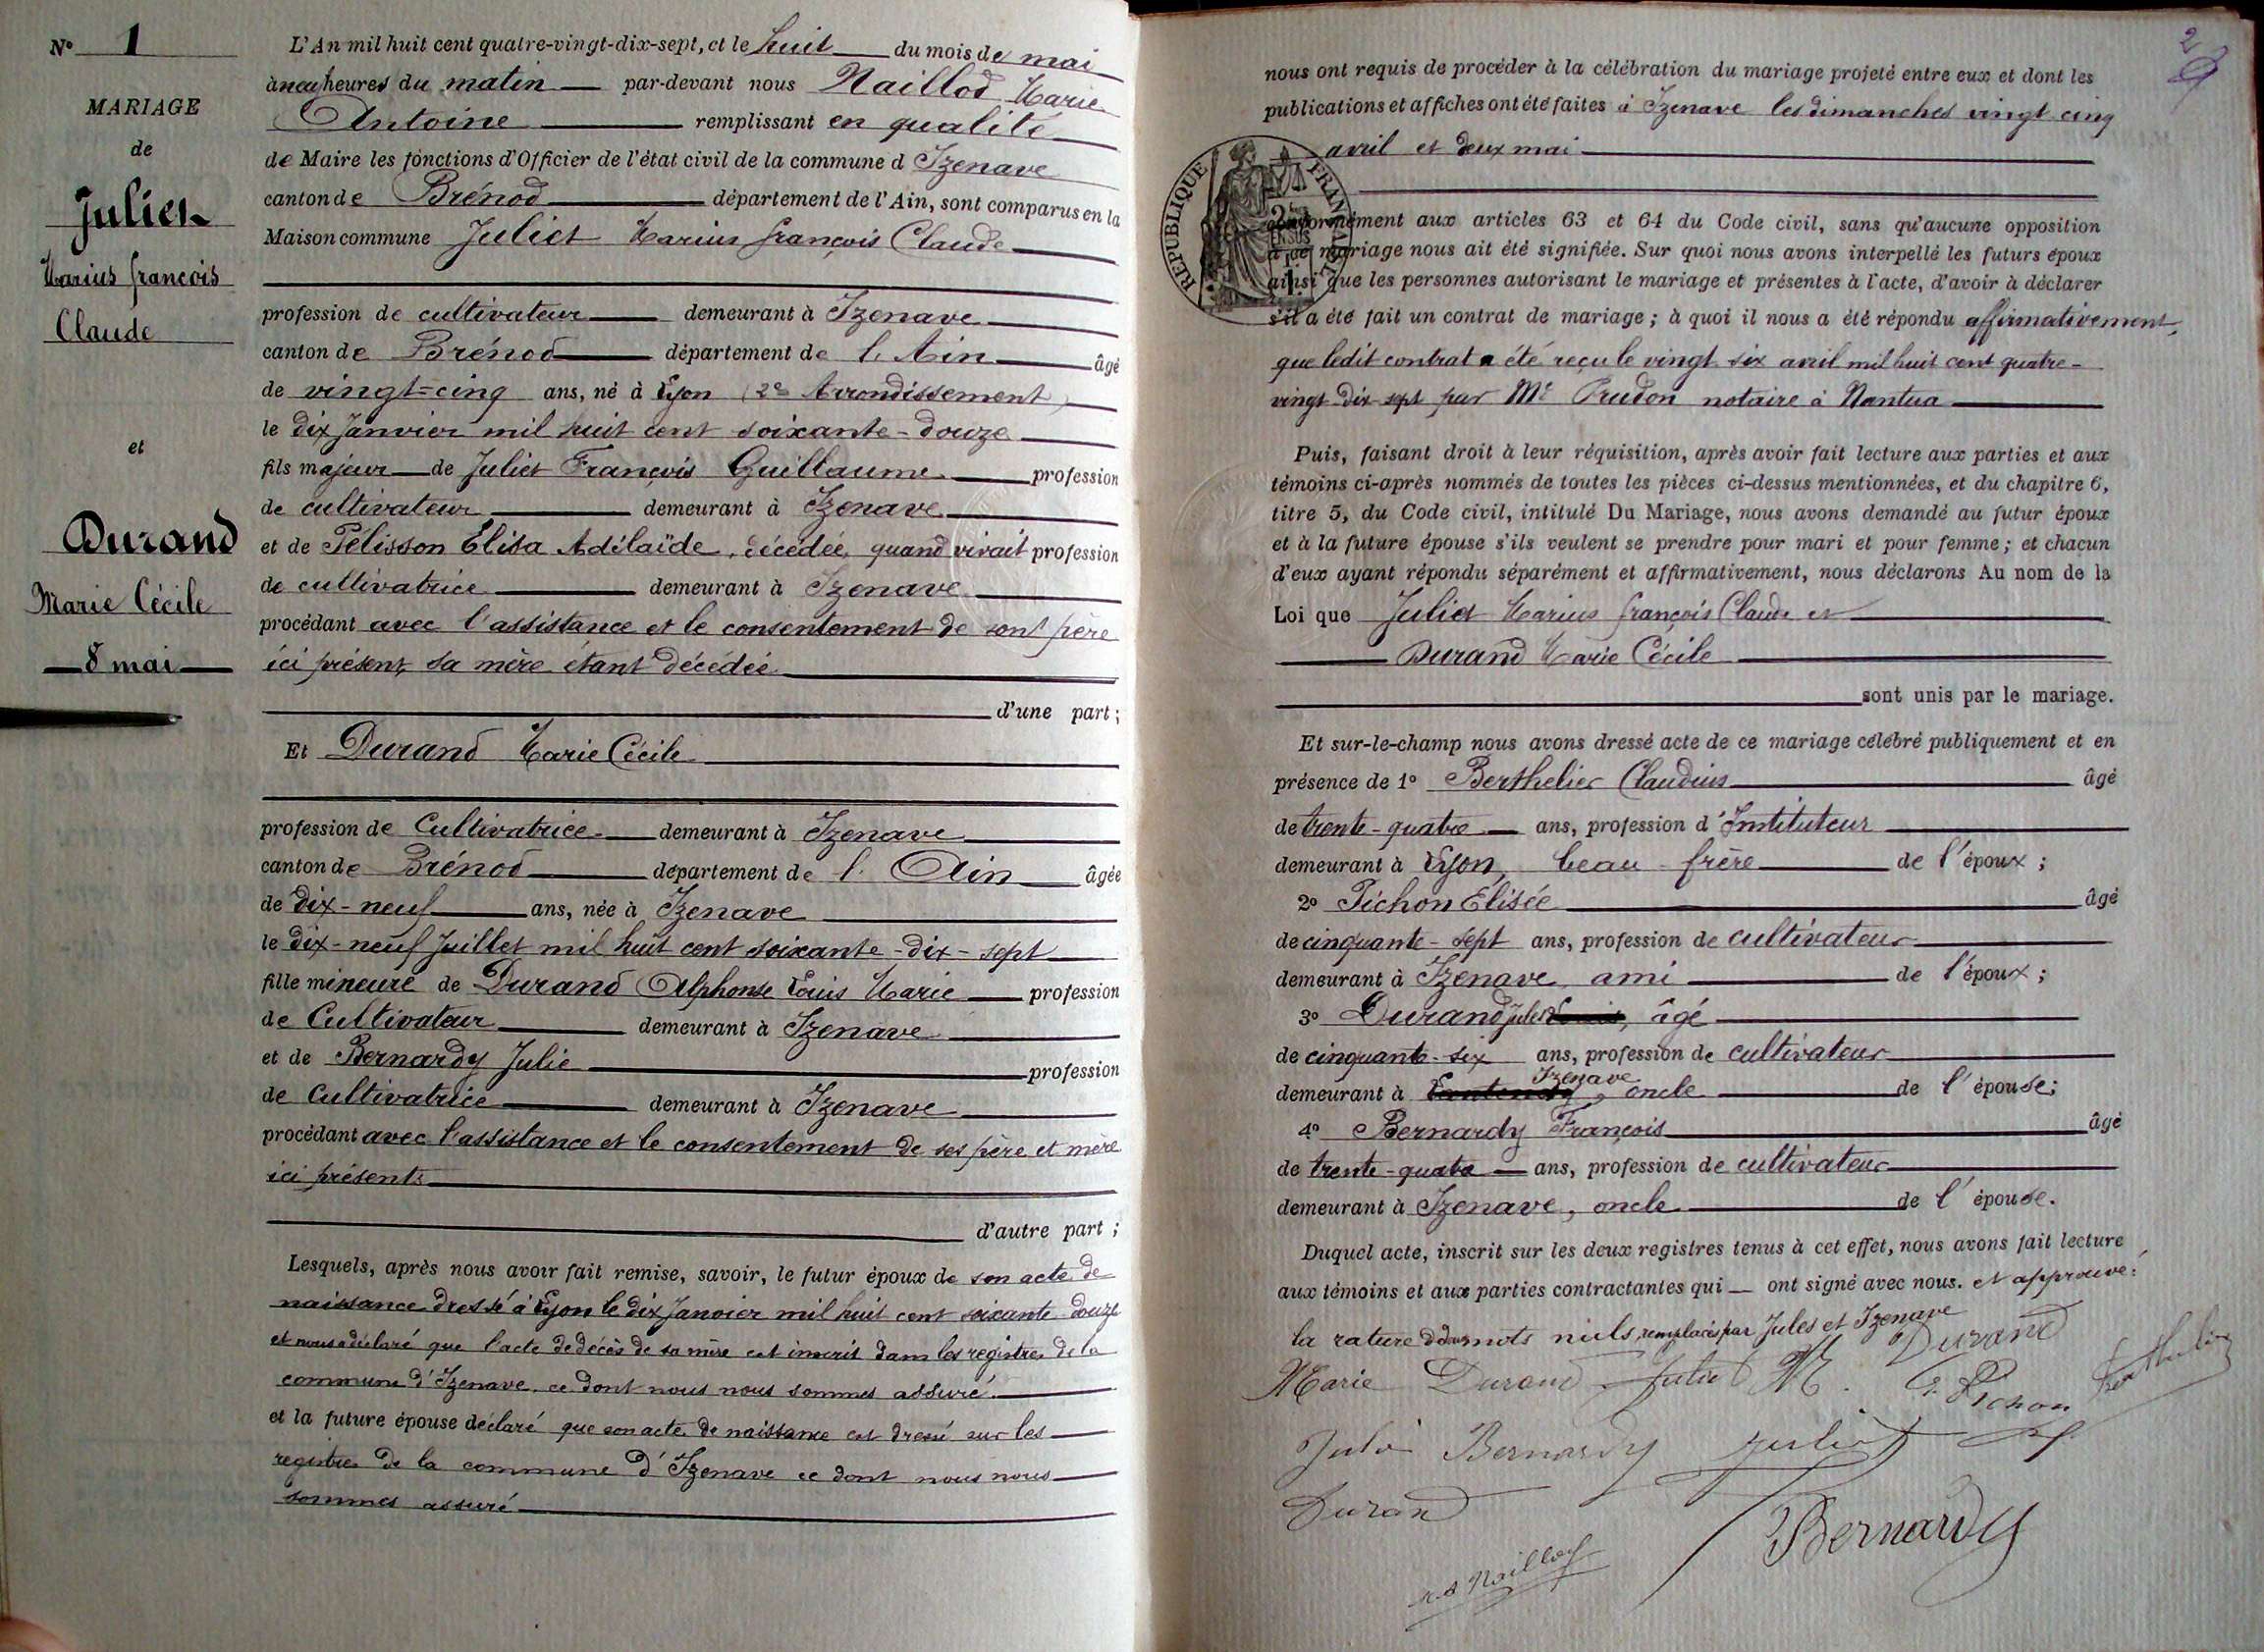 N° 1
MARIAGE
de
Juliet
Marius françois
Claude
et
Durand
Marie Cécile
8 mai
L'An mil huit cent quatre-vingt-dix-sept, et le huit du mois de mai
à neuf heures du matin par-devant nous Naillod Marie
Antoine remplissant en qualité
de Maire les fonctions d'Officier de l'état civil de la commune d Izenave
canton de Brénod département de l'Ain, sont comparus en la
Maison commune Juliet Marius françois Claude
profession de cultivateur demeurant à Izenave
canton de Brénod département de l'Ain âgé
de vingt=cinq ans, né à Lyon (2e Arrondissement)
le dix Janvier mil huit cent soixante-douze
fils majeur de Juliet François Guillaume profession
de cultivateur demeurant à Izenave
et de Pélisson Élisa Adélaïde, décédée, quand vivait profession
de cultivatrice demeurant à Izenave
procédant avec l'assistance et le consentement de sont père
ici présent, sa mère étant décédée
d'une part;
Et Durand Marie Cécile
profession de Cultivatrice demeurant à Izenave
canton de Brénod département de l'Ain âgée
de dix-neuf ans, née à Izenave
le dix-neuf Juillet mil huit cent soixante-dix-sept
fille mineure de Durand Alphonse Louis Marie profession
de Cultivateur demeurant à Izenave
et de Bernardy Julie profession
de Cultivatrice demeurant à Izenave
procédant avec l'assistance et le consentement de ses père et mère
ici présents
d'autre part;
Lesquels, après nous avoir fait remise, savoir, le futur époux de son acte de
naissance dressé à Lyon le dix Janvier mil huit cent soixante-douze
et nous a déclaré que l'acte de décès de sa mère est inscrit dans les registres de la
commune d'Izenave, ce dont nous nous sommes assuré
et la future épouse déclaré que son acte de naissance est dressé sur les
registres de la commune d'Izenave ce dont nous nous
sommes assuré
2
nous ont requis de procéder à la célébration du mariage projeté entre eux et dont les
publications et affiches ont été faites à Izenave les dimanches vingt cinq
avril et deux mai
RÉPUBLIQUE FRANÇAISE
conformément aux articles 63 et 64 du Code civil, sans qu'aucune opposition
à ce mariage nous ait été signifiée. Sur quoi nous avons interpellé les futurs époux
ainsi que les personnes autorisant le mariage et présentes à l'acte, d'avoir à déclarer
s'il a été fait un contrat de mariage; à quoi il nous a été répondu affirmativement,
que ledit contrat a été reçu le vingt-six avril mil huit cent quatre-
vingt-dix-sept par Me Prudon notaire à Nantua
Puis, faisant droit à leur réquisition, après avoir fait lecture aux parties et aux
témoins ci-après nommés de toutes les pièces ci-dessus mentionnées, et du chapitre 6,
titre 5, du Code civil, intitulé Du Mariage, nous avons demandé au futur époux
et à la future épouse s'ils veulent se prendre pour mari et pour femme; et chacun
d'eux ayant répondu séparément et affirmativement, nous déclarons Au nom de la
Loi que Juliet Marius françois Claude et
Durand Marie Cécile
sont unis par le mariage.
Et sur-le-champ nous avons dressé acte de ce mariage célébré publiquement et en
présence de 1° Berthelier Claudius âgé
de trente-quatre ans, profession d'Instituteur
demeurant à Lyon, beau-frère de l'époux;
2° Pichon Élisée âgé
de cinquante-sept ans, profession de cultivateur
demeurant à Izenave, ami de l'époux;
3° Durand Jules, âgé
de cinquante-six ans, profession de cultivateur
demeurant à Izenave, oncle de l'épouse;
4° Bernardy François âgé
de trente-quatre ans, profession de cultivateur
demeurant à Izenave, oncle de l'épouse.
Duquel acte, inscrit sur les deux registres tenus à cet effet, nous avons fait lecture
aux témoins et aux parties contractantes qui ont signé avec nous. et approuvé:
la rature de deux mots nuls, remplacés par Jules et Izenave
Durand
Marie Durand Juliet M. E. Pichon Berthelier
Julie Bernardy Juliet
Durand
Bernardy
M A Naillod